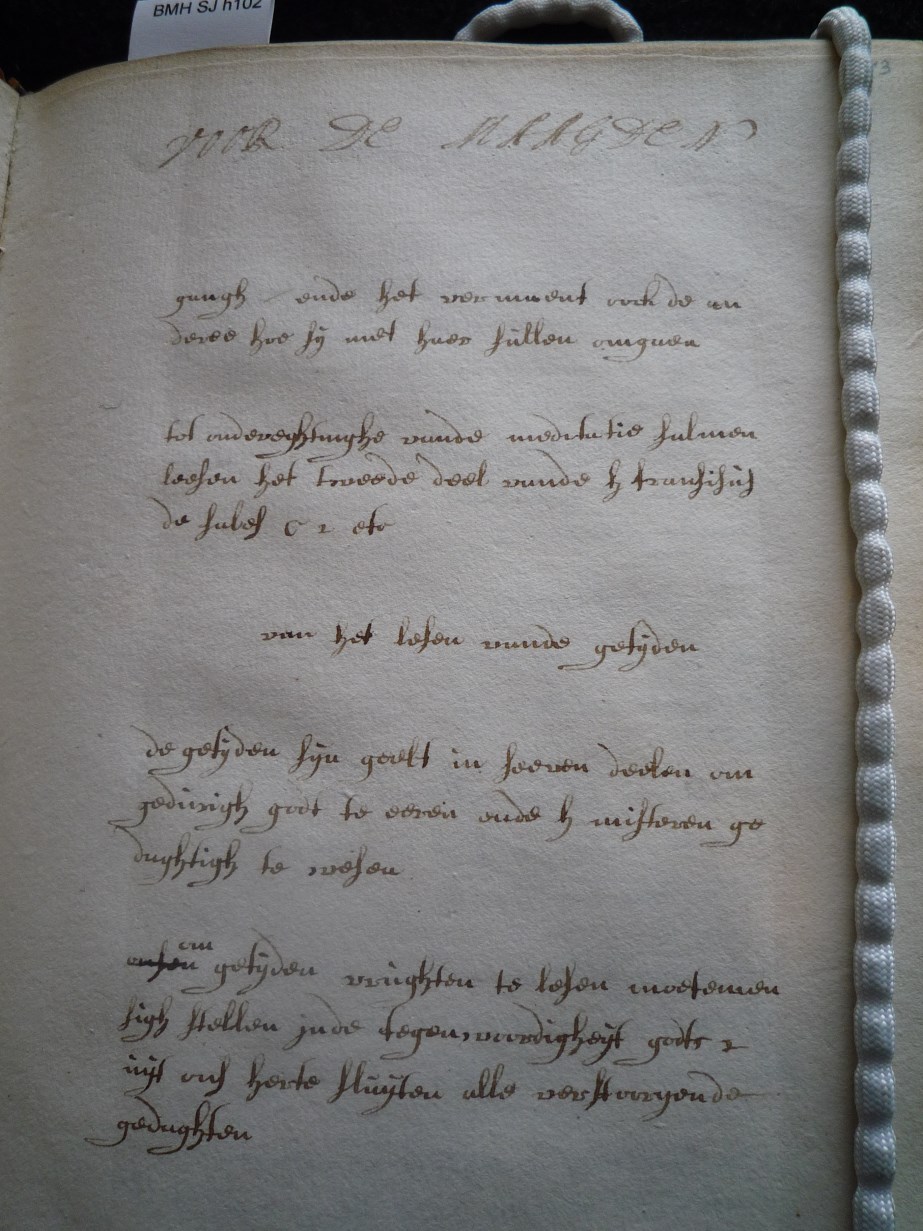 BMH SJ h102
VOOR DE MAAGDEN
gangh ende het vermaent oock de an
deree hoe sÿ met haer sullen omgaen
tot onderreghtinghe vande meditatie salmen
leesen het tweede deel vande h franchisus
de sales C 1 etc
van het lesen vande getÿden
de getÿden sÿn geelt in seeven deelen om
gedurigh godt te eeren ende h misteren ge
daghtigh te wesen
om
getÿden vrughten te lesen moetemen
sigh stellen inde tegenwoordigheÿt godts 2
uÿt ons herte sluÿten alle verstooryende
gedaghten